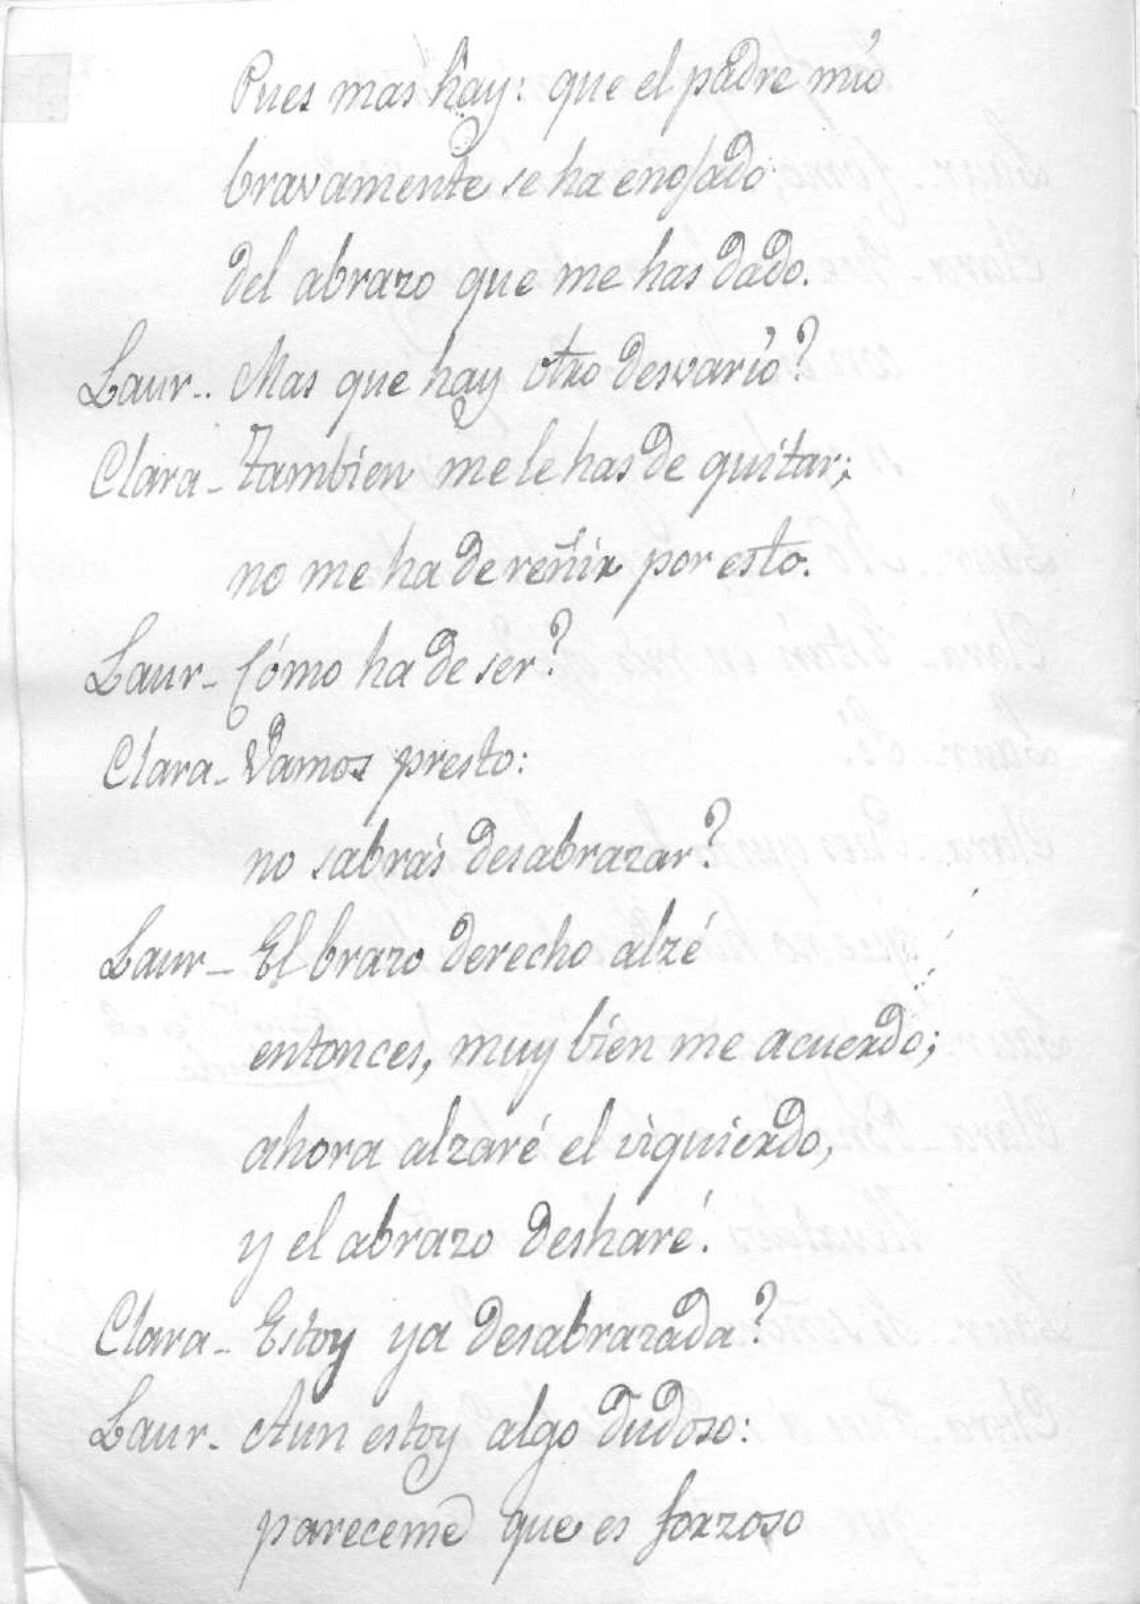 Pues mas hay: que el padre mío
bravamente se ha enojado
del abrazo que me has dado.
Laur.. Mas que hay otro desvarío?
Clara - Tambien me le has de quitar;
no me ha de reñir por esto.
Laur - Cómo ha de ser?
Clara - Vamos presto:
no sabrás desabrazar?
Laur - El brazo derecho alzé
entonces, muy bien me acuerdo;
ahora alzaré el izquierdo,
y el abrazo desharé.
Clara - Estoy ya desabrazada?
Laur. Aun estoy algo dudoso:
pareceme que es forzoso